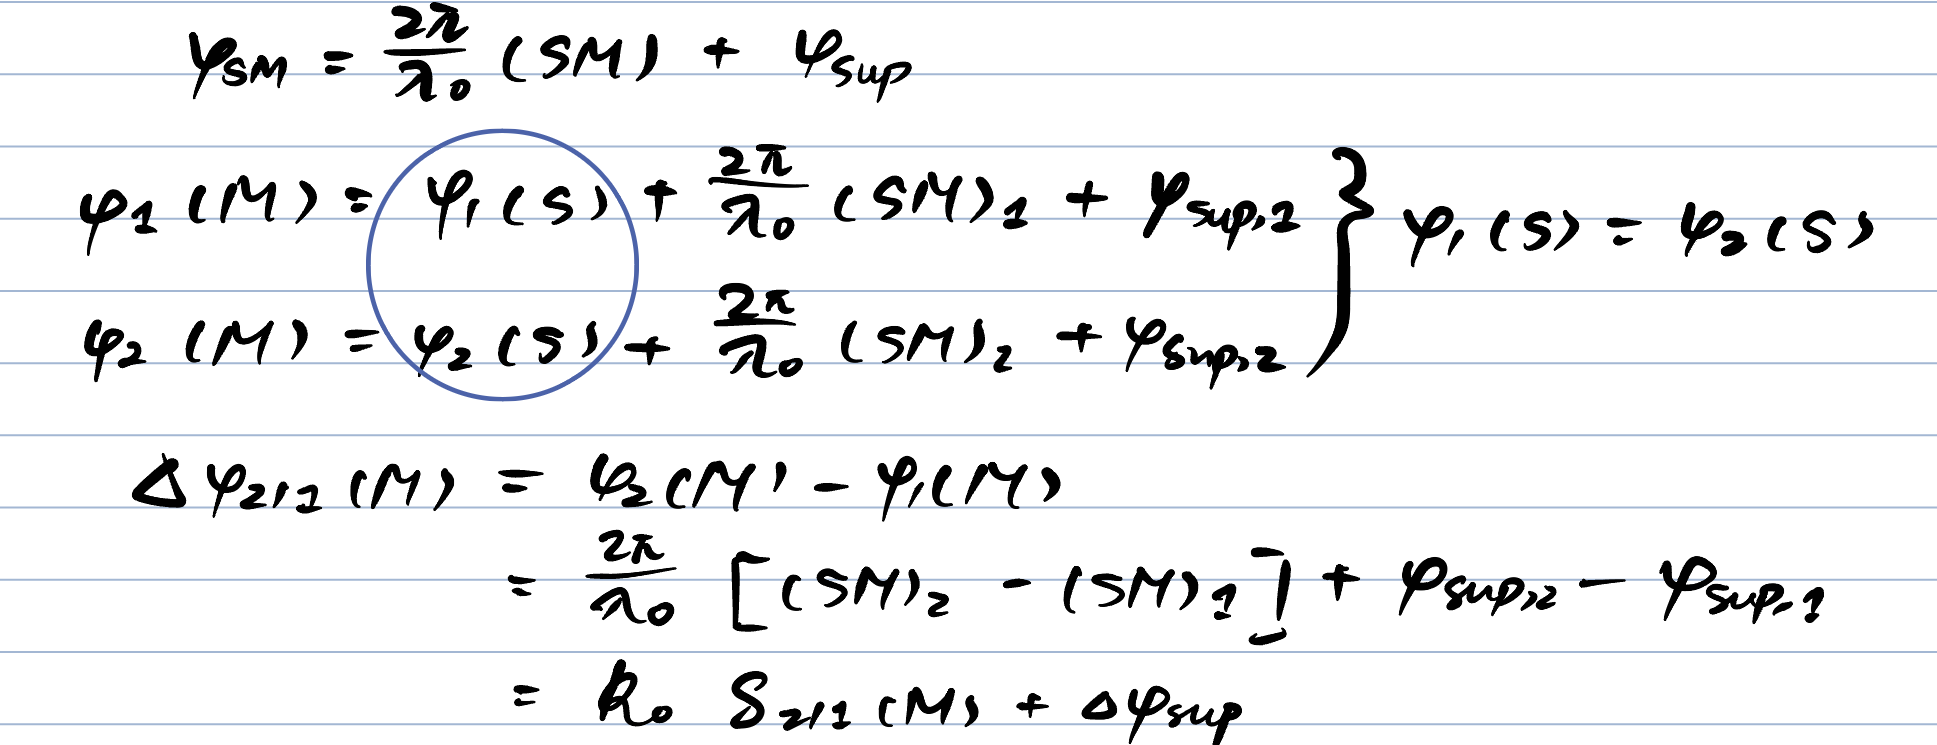 φ_SM = 2π/λ₀ (SM) + φ_sup
φ₁(M) = φ₁(S) + 2π/λ₀ (SM)₁ + φ_sup,1 } φ₁(S) = φ₂(S)
φ₂(M) = φ₂(S) + 2π/λ₀ (SM)₂ + φ_sup,2
Δφ_2/1 (M) = φ₂(M) - φ₁(M)
= 2π/λ₀ [(SM)₂ - (SM)₁] + φ_sup,2 - φ_sup,1
= k₀ δ_2/1 (M) + Δφ_sup